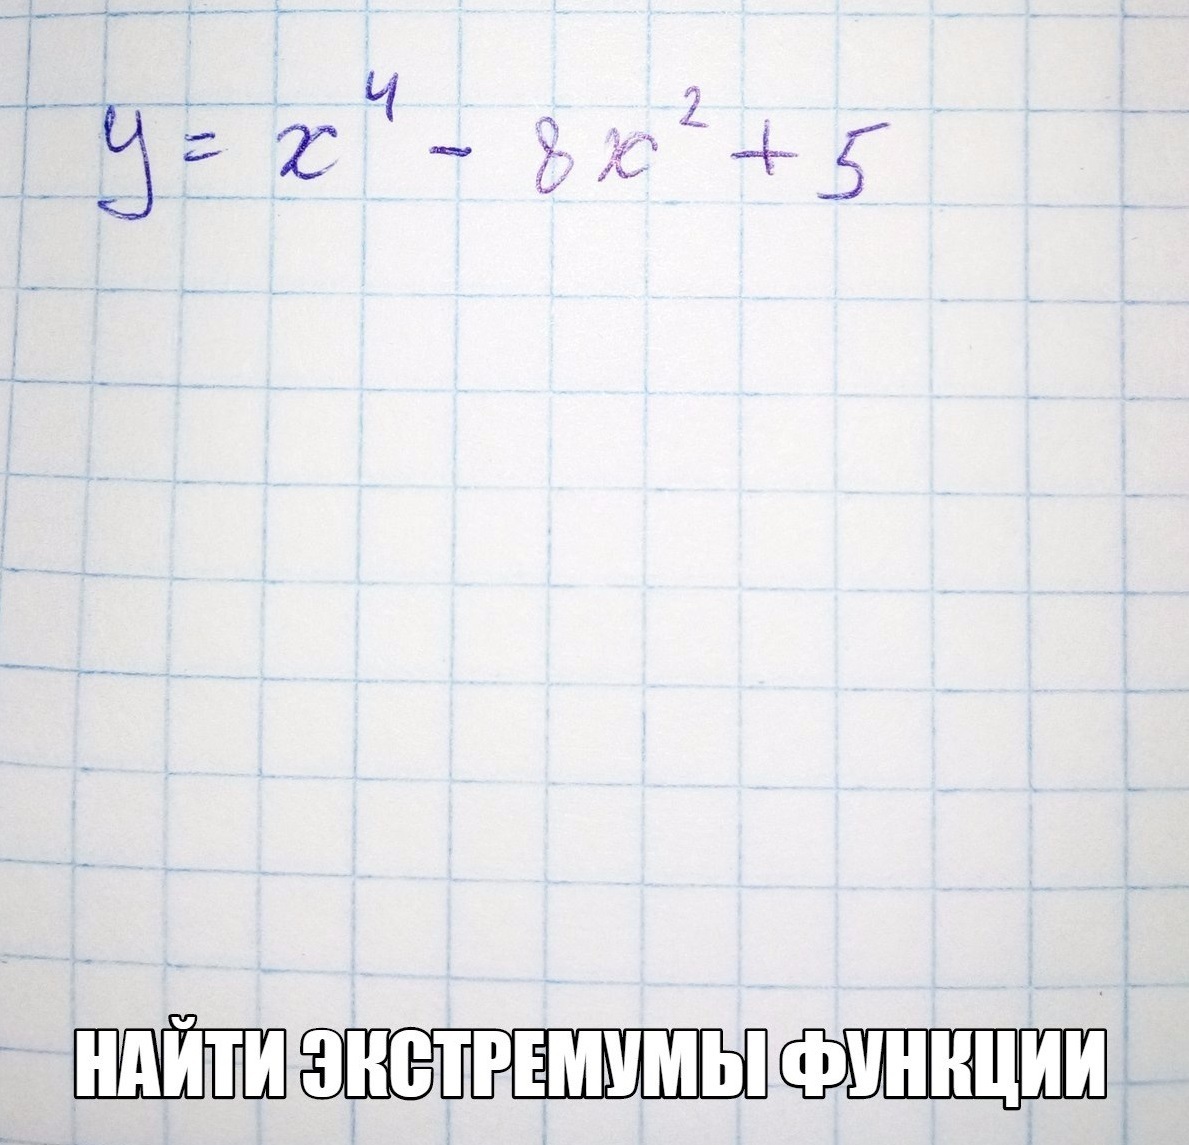 y = x⁴ - 8x² + 5
НАЙТИ ЭКСТРЕМУМЫ ФУНКЦИИ